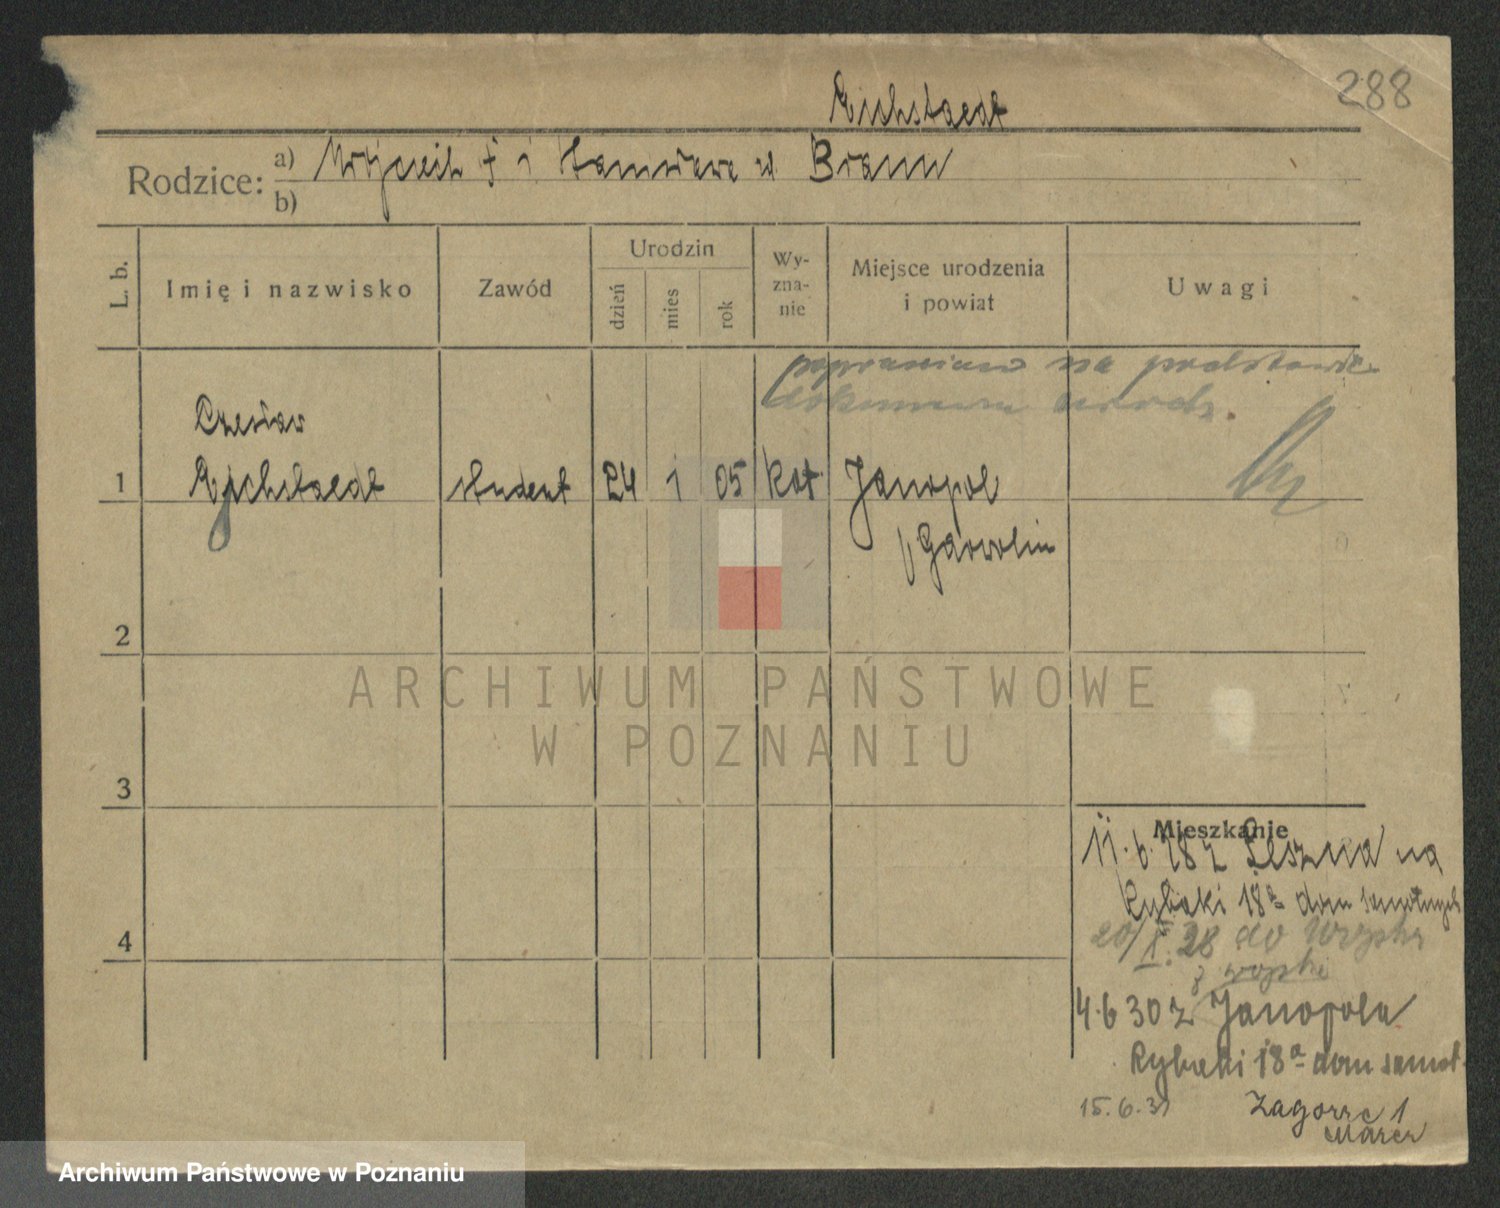 288
Eichstaedt
Rodzice: a) Wojciech † i Stanisława z d. Braun
b)
L. b.
Imię i nazwisko
Zawód
Urodzin
dzień
mies
rok
Wy-
zna-
nie
Miejsce urodzenia
i powiat
Uwagi
poprawiono na podstawie
dokumentu urodz.
Czesław
1 Eichstaedt student 24 1 05 kat Janopol
Garwolin
2
3
4
Mieszkanie
11.6.28 z Leszna na
Rybaki 18a dom
28 do
z
4.6 30 z Janopola
Rybaki 18a dom
15.6.31 Zagorze 1
ARCHIWUM PAŃSTWOWE
W POZNANIU
Archiwum Państwowe w Poznaniu